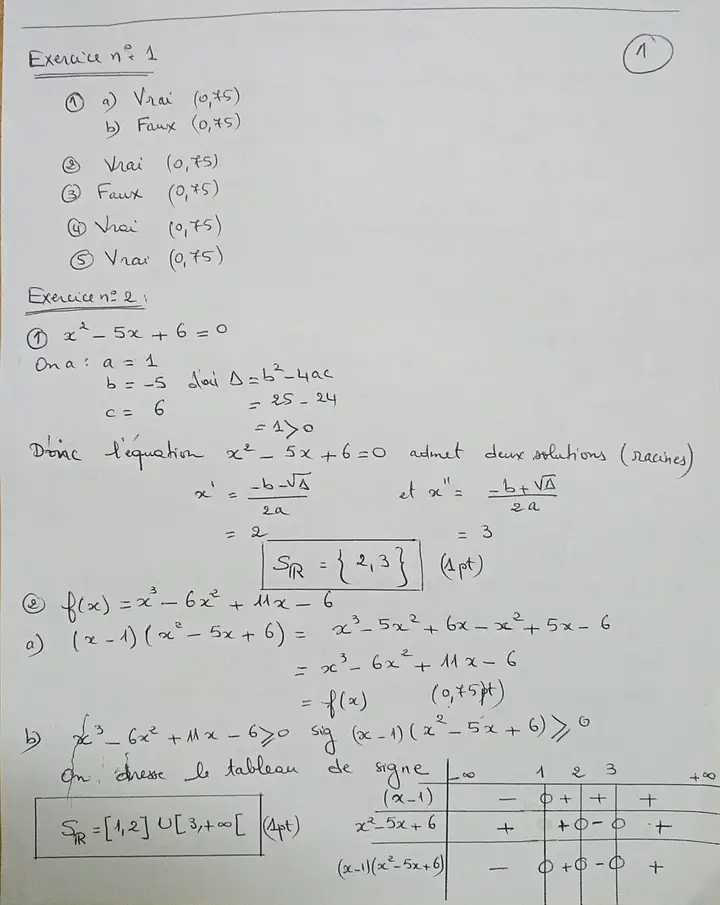 1
Exercice n° 1
① a) Vrai (0,75)
b) Faux (0,75)
② Vrai (0,75)
③ Faux (0,75)
④ Vrai (0,75)
⑤ Vrai (0,75)
Exercice n° 2 :
① x² - 5x + 6 = 0
On a : a = 1
b = -5 d'où Δ = b² - 4ac
c = 6 = 25 - 24
= 1 > 0
Donc l'équation x² - 5x + 6 = 0 admet deux solutions (racines)
x' = (-b - √Δ)/2a et x'' = (-b + √Δ)/2a
= 2 = 3
S_IR = {2,3} (1pt)
② f(x) = x³ - 6x² + 11x - 6
a) (x - 1)(x² - 5x + 6) = x³ - 5x² + 6x - x² + 5x - 6
= x³ - 6x² + 11x - 6
= f(x) (0,75pt)
b) x³ - 6x² + 11x - 6 ⩾ 0 sig (x - 1)(x² - 5x + 6) ⩾ 0
On dresse le tableau de signe
-∞ 1 2 3 +∞
(x-1) - 0 + + +
x² - 5x + 6 + + 0 - 0 +
(x-1)(x² - 5x + 6) - 0 + 0 - 0 +
S_IR = [1,2] ∪ [3,+∞[ (1pt)